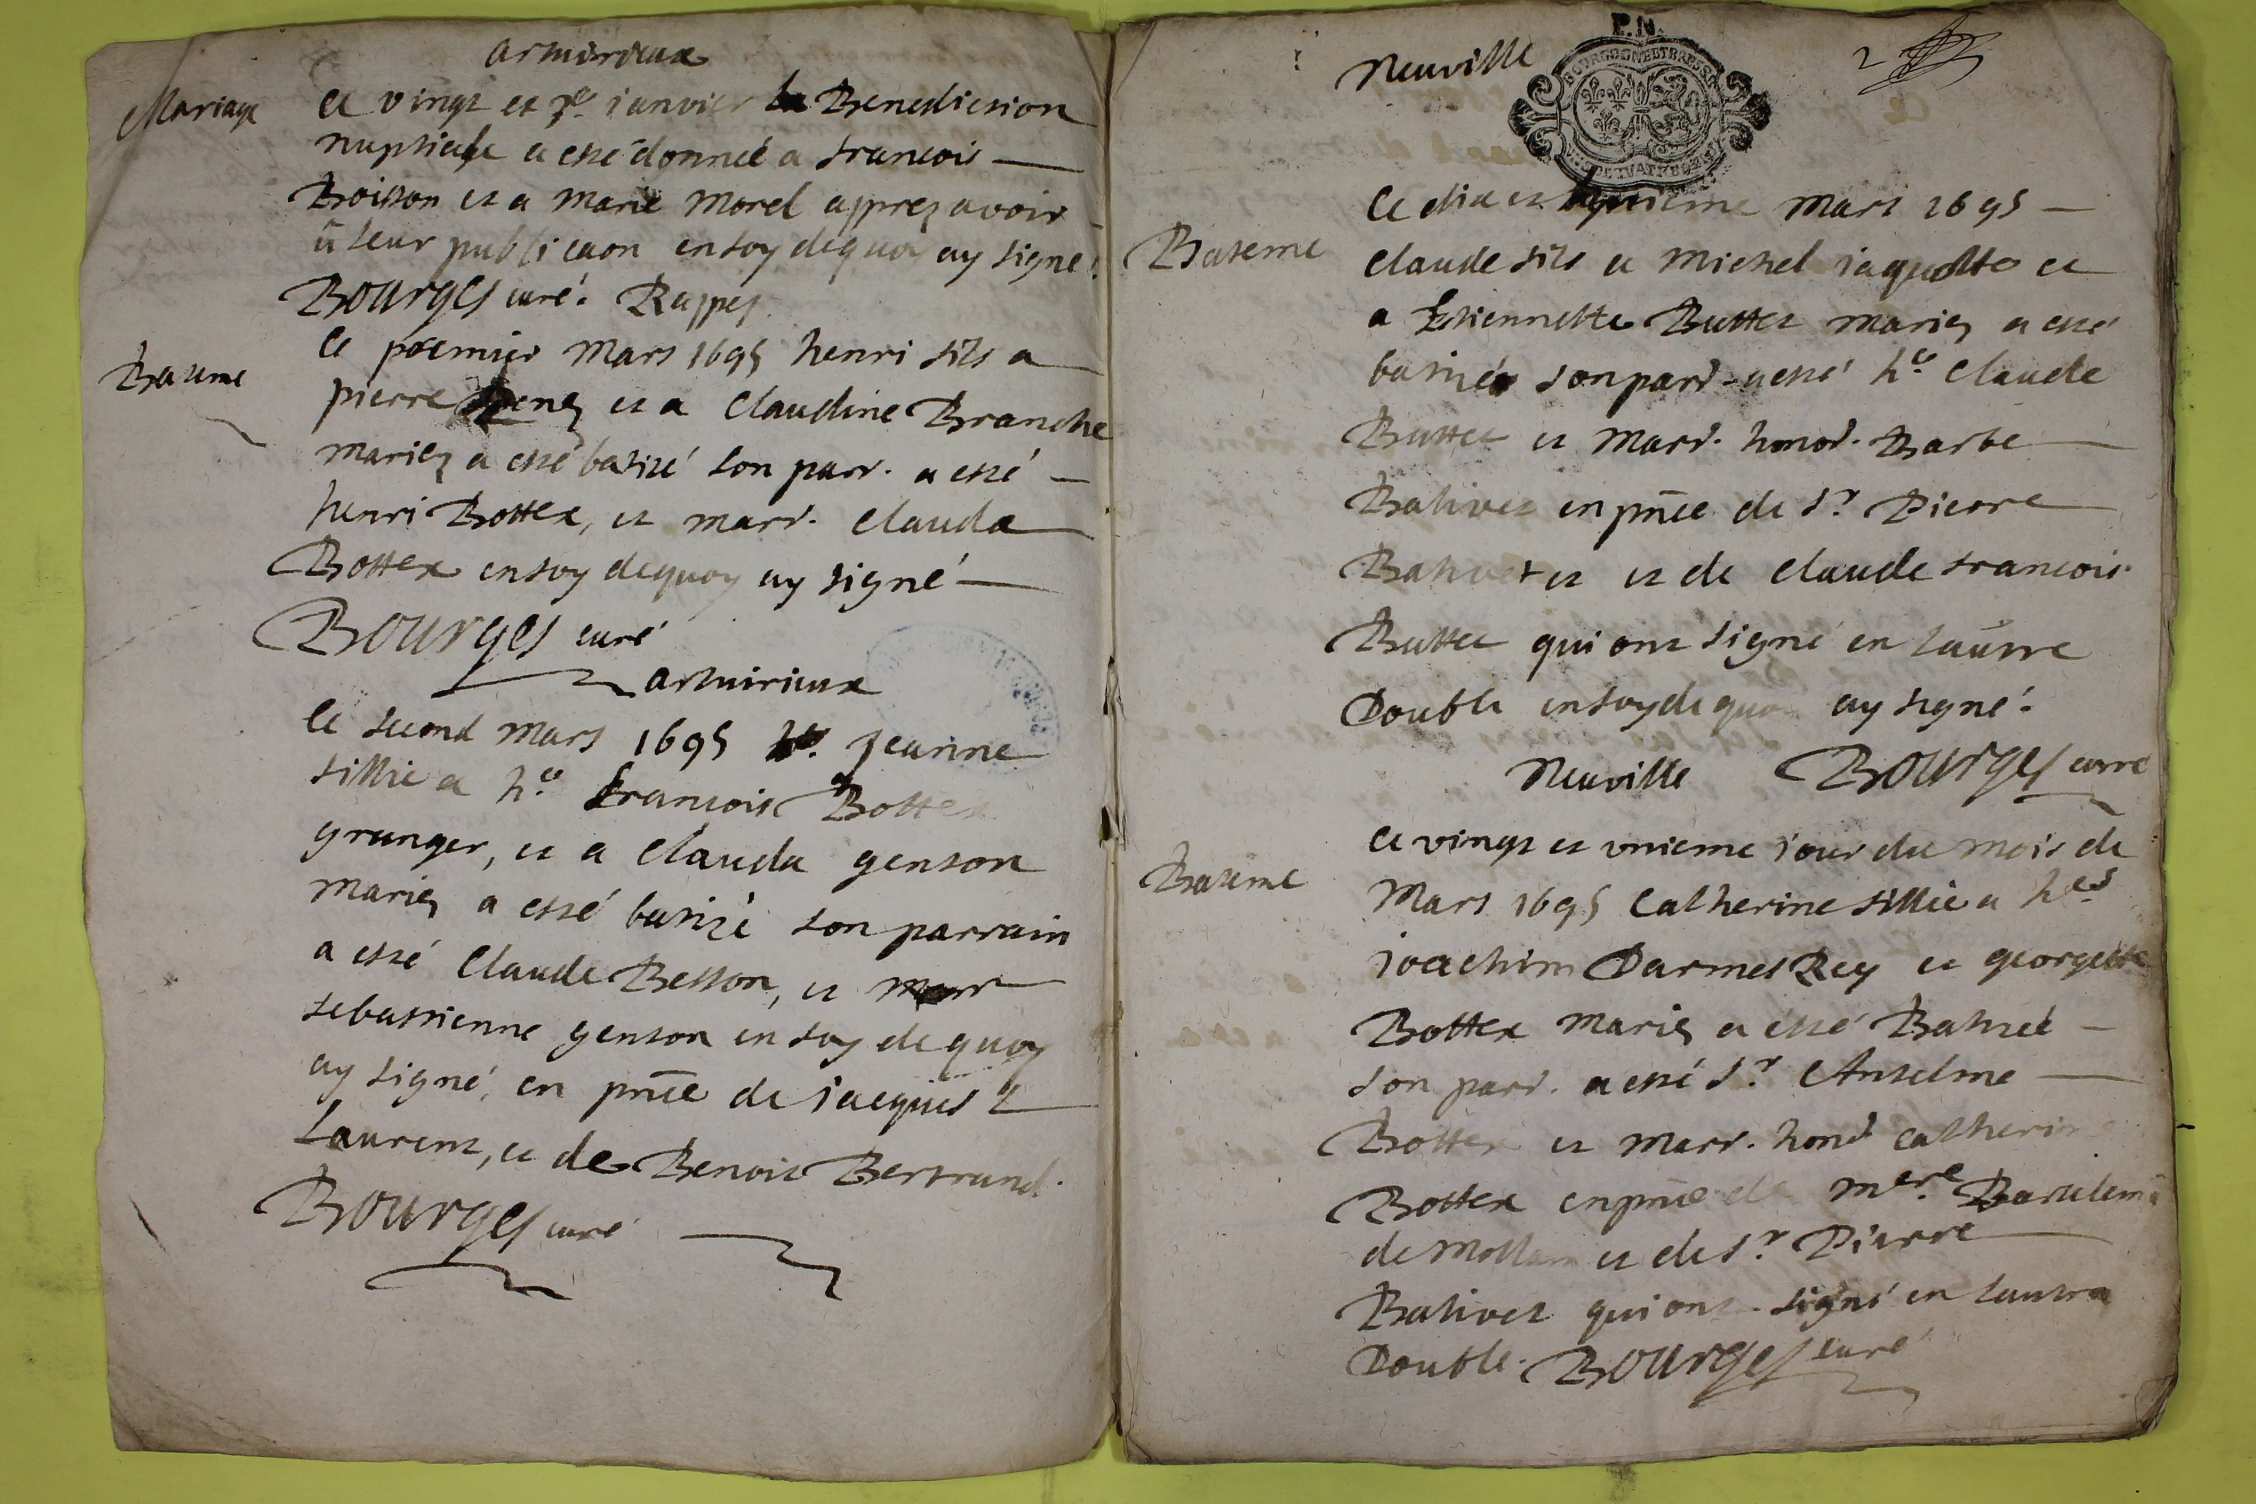 Arthuirieux
Mariage
Ce vingt et janvier la Benediction
nuptiale a esté donneé a francois —
Boisson et a Marie Morel apprez avoir
ü leur publicaon en foy dequoy ay signé.
Bourges curé. Rappez
Bateme
Ce premier Mars 1695 henri fils a
pierre et a Claudine Branche
mariez a esté batizé son parr. a esté —
henri Bottex, et marr. Clauda
Bottex en foy dequoy ay signé —
Bourges curé
Arthuirieux
Ce second Mars 1695 Jeanne
fillie a h.e francois Bottex
granger, et a Clauda genson
mariez a esté batizé son parrain
a esté Claude Besson, et marr
sebastienne genson en foy de quoy
ay signé, en pnce de jacques
Laurent, et de Benoit Bertrand.
Bourges curé
P. N.
Neuville
2
Bateme
Ce dix et Mars 1695 —
Claude fils a Michel jaquette et
a Estiennette Buttet mariez a esté
batizé son parr. a esté h.e Claude
Buttet et Marr. honor. Barbe —
Bativet en pnce de s.r Pierre
Bativet et et de Claude francois
Buttet qui ont signé en lautre
Double en foy de quoy ay signé.
Neuville Bourges curé
Bateme
Ce vingt et vnieme jour du mois de
Mars 1695 Catherine fillie a h.es
joachim Darmes Rey et georgette
Bottex mariez a esté Batizeé —
son parr. a esté s.r Anselme —
Bottex et Marr. honor Catherine
Bottex en pnce de
de et de s.r Pierre
Bativet qui ont signé en lautre
Double. Bourges curé